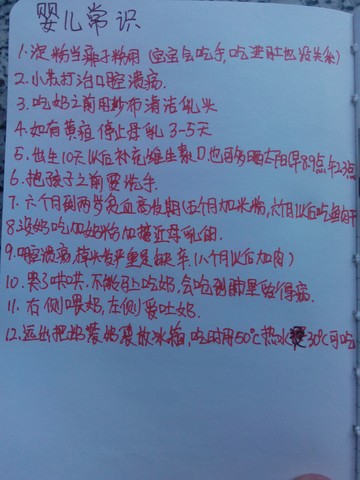 婴儿常识
1.淀粉当痱子粉用(宝宝会吃手,吃进肚也没关系)
2.小苏打治口腔溃疡.
3.吃奶之前用纱布清洁乳头
4.如有黄疸停止母乳3-5天
5.出生10天以后补充维生素D.也可多晒太阳(早8.9点
6.抱孩子之前要洗手.
7.六个月到两岁贫血高发期(五个月加米粉,六个月以后吃
8.没奶吃加奶粉加接近母乳的.
9.口腔溃疡,掉头发严重是缺锌.(八个月以后加肉)
10.哭了哄哄.不能马上吃奶,会吃到肺里致得病.
11.右侧喂奶,左侧爱吐奶.
12.运外把奶装奶袋放冰箱,吃时用50℃热水 30℃可吃